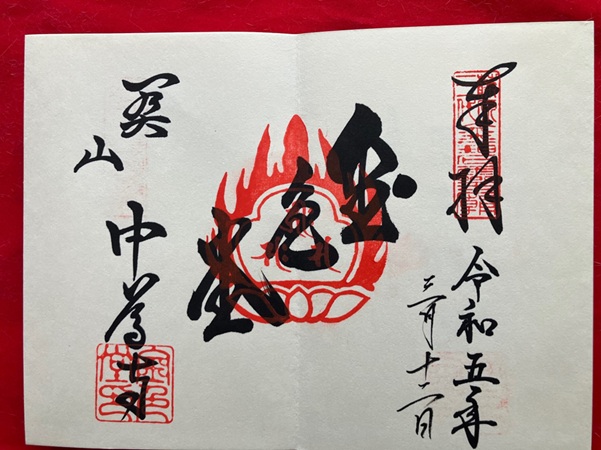 奉拝
令和五年
三月十二日
金色堂
関山
中尊寺